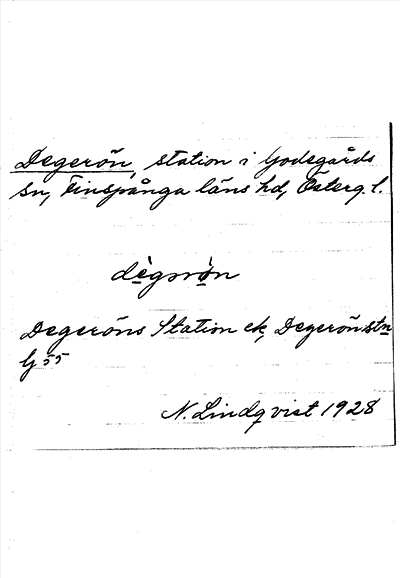 Degerön, station i Godegårds
sn, Finspånga läns hd, Österg. l.
dègərö̀n
Degeröns Station ek, Degerön stn
G 55
N. Lindqvist 1928